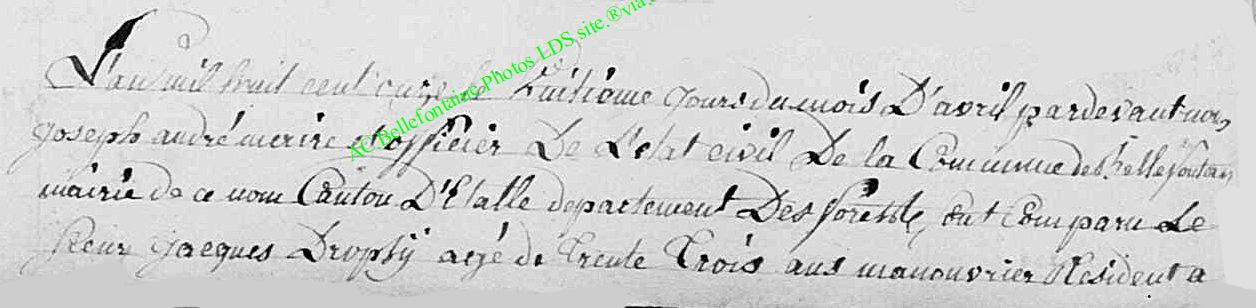 L'an mil huit cent onze le huitieme jours du mois D'avril pardevant nou
joseph andré merire et officier De L'etat civil De la Commune de Bellefontan
mairie de ce nom Canton D'Etalle departement Des forests, ont Comparu Le
sieur jacques Dropsÿ agé de trente trois ans manouvrier Resident a
AC Bellefontaine Photos LDS site.®via.